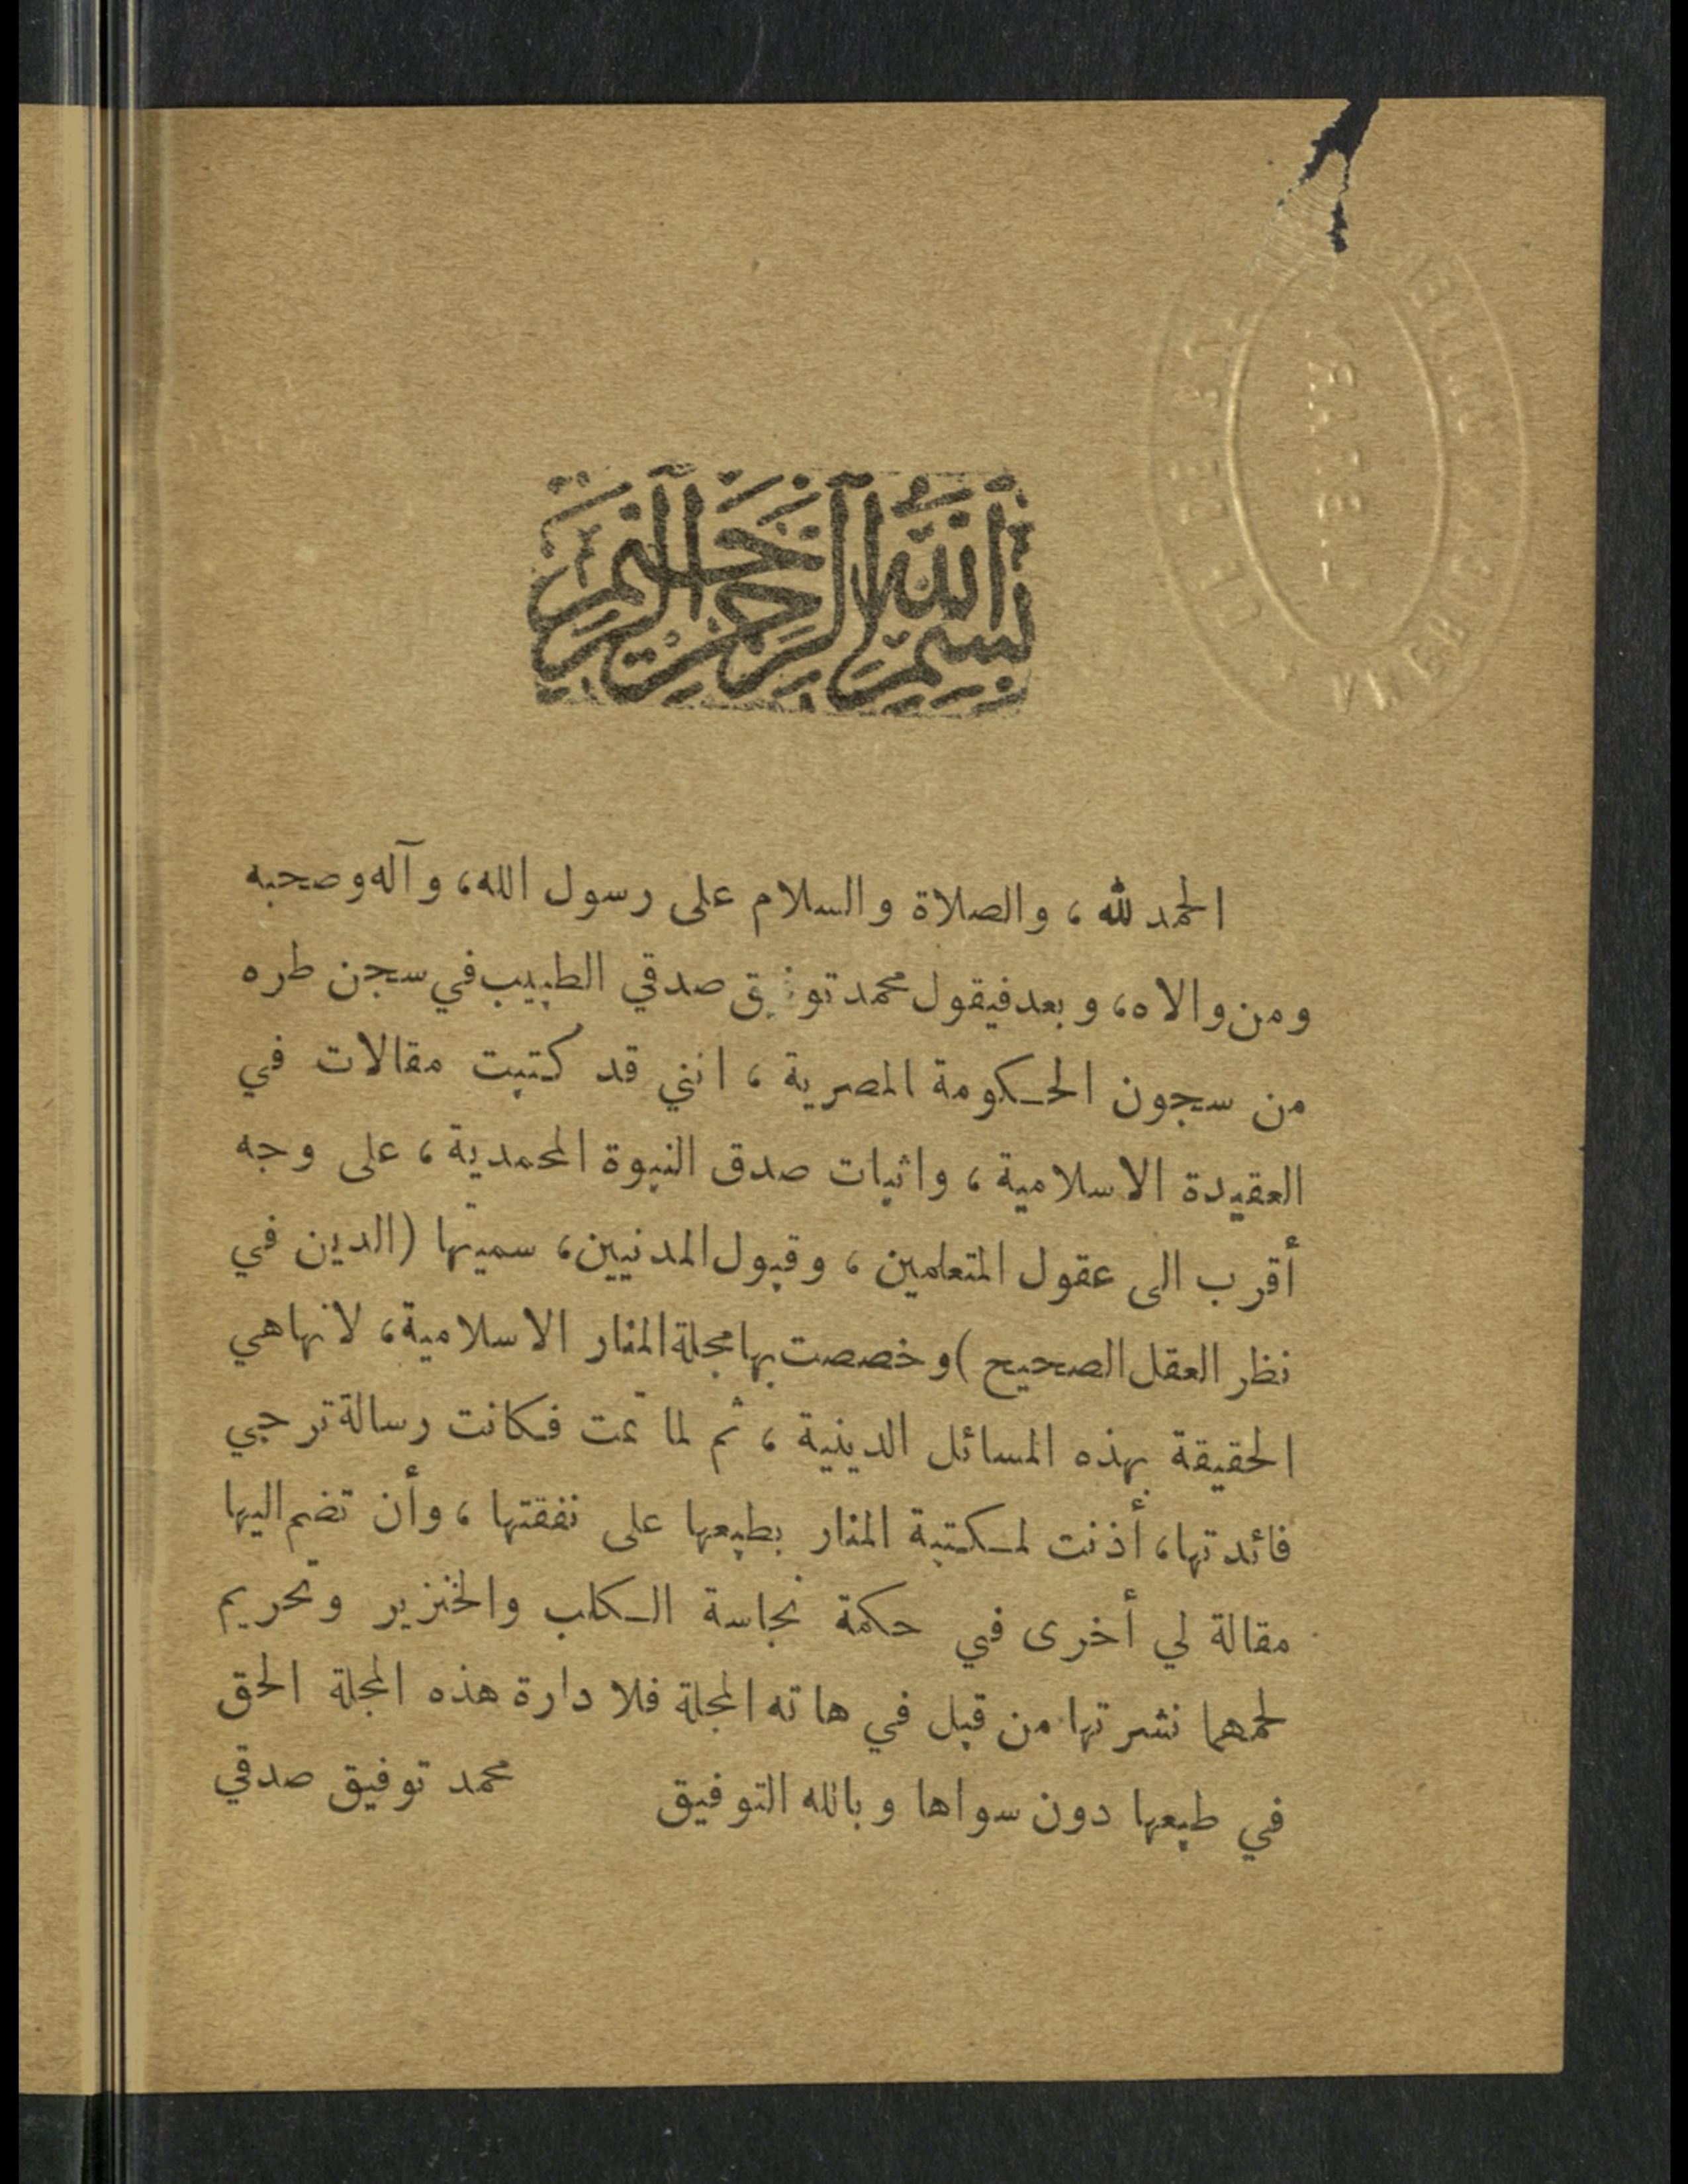 بسم الله الرحمن الرحيم
الحمد لله ، والصلاة والسلام على رسول الله، وآله وصحبه
ومن والاه، وبعد فيقول محمد توفيق صدقي الطبيب في سجن طره
من سجون الحكومة المصرية ، انني قد كتبت مقالات في
العقيدة الاسلامية ، واثبات صدق النبوة المحمدية ، على وجه
أقرب الى عقول المتعلمين ، وقبول المدنيين، سميتها (الدين في
نظر العقل الصحيح ) وخصصت بها مجلة المنار الاسلامية، لانها هي
الحقيقة بهذه المسائل الدينية ، ثم لما تمت فكانت رسالة ترجي
فائدتها، أذنت لمكتبة المنار بطبعها على نفقتها ، وأن تضم اليها
مقالة لي أخرى في حكمة نجاسة الكلب والخنزير وتحريم
لحمهما نشرتها من قبل في هاته المجلة فلادارة هذه المجلة الحق
في طبعها دون سواها وبالله التوفيق محمد توفيق صدقي